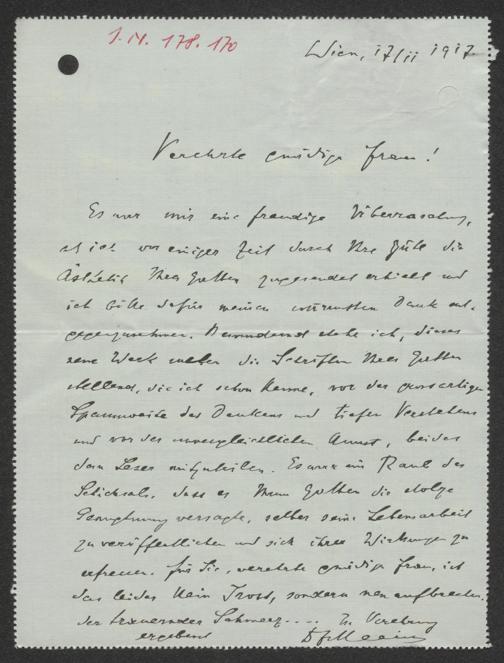 I.N. 178.170
Wien, 17/II 1917
Verehrte gnädige Frau!
Es war mir eine freudige Überraschung,
als ich vor einiger Zeit durch Ihre Güte die
Ästhetik Ihres Gatten zugesendet erhielt und
ich bitte dafür meinen wärmsten Dank ent-
gegenzunehmen. Bewundernd stehe ich, dieses
neue Werk neben die Schriften Ihres Gatten
stellend, die ich schon kenne, vor der grossartigen
Spannweite des Denkens und tiefen Verstehens
und vor der unvergleichlichen Kunst, beides
dem Leser mitzuteilen. Es war ein Raub des
Schicksals, dass es Ihrem Gatten die stolze
Genugtuung versagte, selber seine Lebensarbeit
zu veröffentlichen und sich ihrer Wirkungen zu
erfreuen. Für Sie, verehrte gnädige Frau, ist
das leider kein Trost, sondern neu aufbrechen-
der brennender Schmerz.... In Verehrung
ergebenst